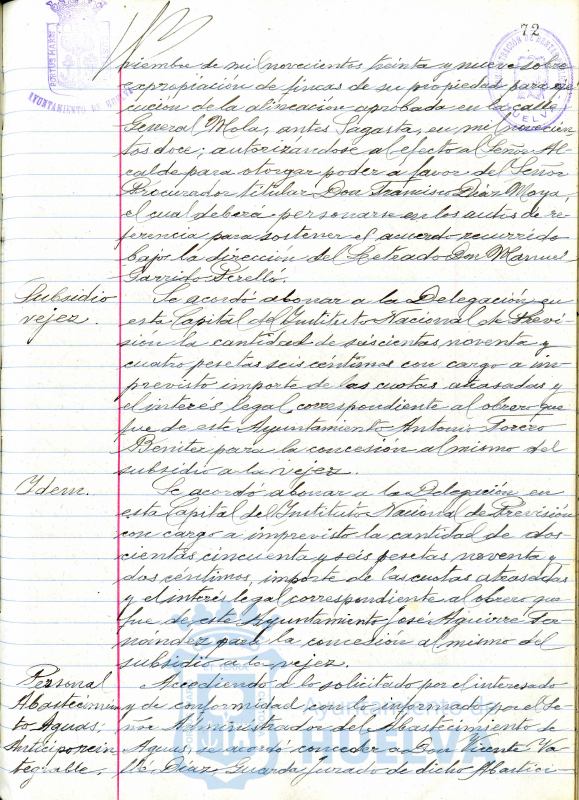 72
PORTUS MARIS
AYUNTAMIENTO DE HUELVA
HUELVA
viembre de mil novecientos treinta y nueve sobre
expropiación de fincas de su propiedad para eje
cución de la alineación aprobada en la calle
General Mola, antes Sagasta, en mil novecien
tos doce; autorizandose al efecto al Señor Al
calde para otorgar poder a favor del Señor
Procurador titular Don Francisco Díaz Moya,
el cual deberá personarse en los autos de re
ferencia para sostener el acuerdo recurrido
bajo la dirección del Letrado Don Manuel
Garrido Perelló.
Subsidio
vejez.
Se acordó abonar a la Delegación en
esta Capital del Instituto Nacional de Previ
sión la cantidad de seiscientas noventa y
cuatro pesetas seis céntimos con cargo a im
previsto importe de las cuotas atrasadas y
el interés legal correspondiente al obrero que
fue de este Ayuntamiento Antonio Forero
Benitez para la concesión al mismo del
subsidio a la vejez.
Ydem.
Se acordó abonar a la Delegación en
esta Capital del Instituto Nacional de Previsión
con cargo a imprevisto la cantidad de dos
cientas cincuenta y seis pesetas noventa y
dos centimos, importe de las cuotas atrasadas
y el interés legal correspondiente al obrero que
fue de este Ayuntamiento José Aguirre Fer
nández para la concesión al mismo del
subsidio a la vejez.
Personal
Abastecimien
to Aguas;
Anticipo rein
tegrable.
Accediendo a lo solicitado por el interesado
y de conformidad con lo informado por el Se
ñor Administrador del Abastecimiento de
Aguas, se acordó conceder a Don Vicente Va
lle Díaz Guarda Jurado de dicho Abasteci-
Ayuntamiento de
HUELVA